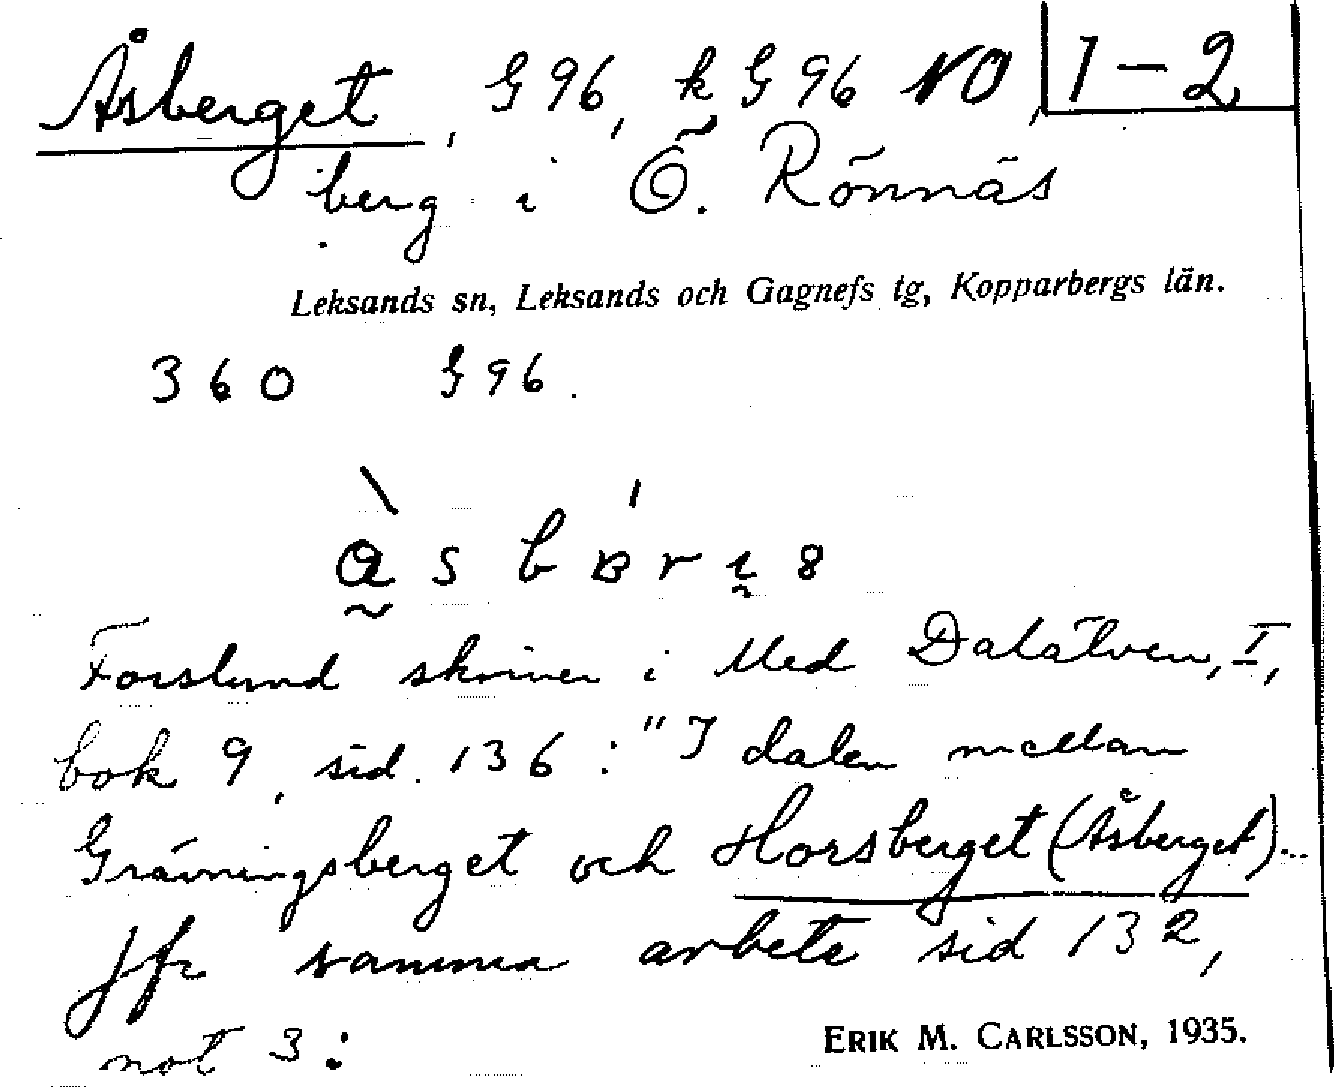 Åsberget, G 96, k G 96 NO, 1-2
berg i Ö. Rönnäs
Leksands sn, Leksands och Gagnefs tg, Kopparbergs län.
360 G 96.
Forslund skriver i Med Dalälven, I,
bok 9, sid. 136: "I dalen mellan
Grävningsberget och Horsberget (Åsberget)...
Jfr samma arbete sid 132,
not 3:
ERIK M. CARLSSON, 1935.